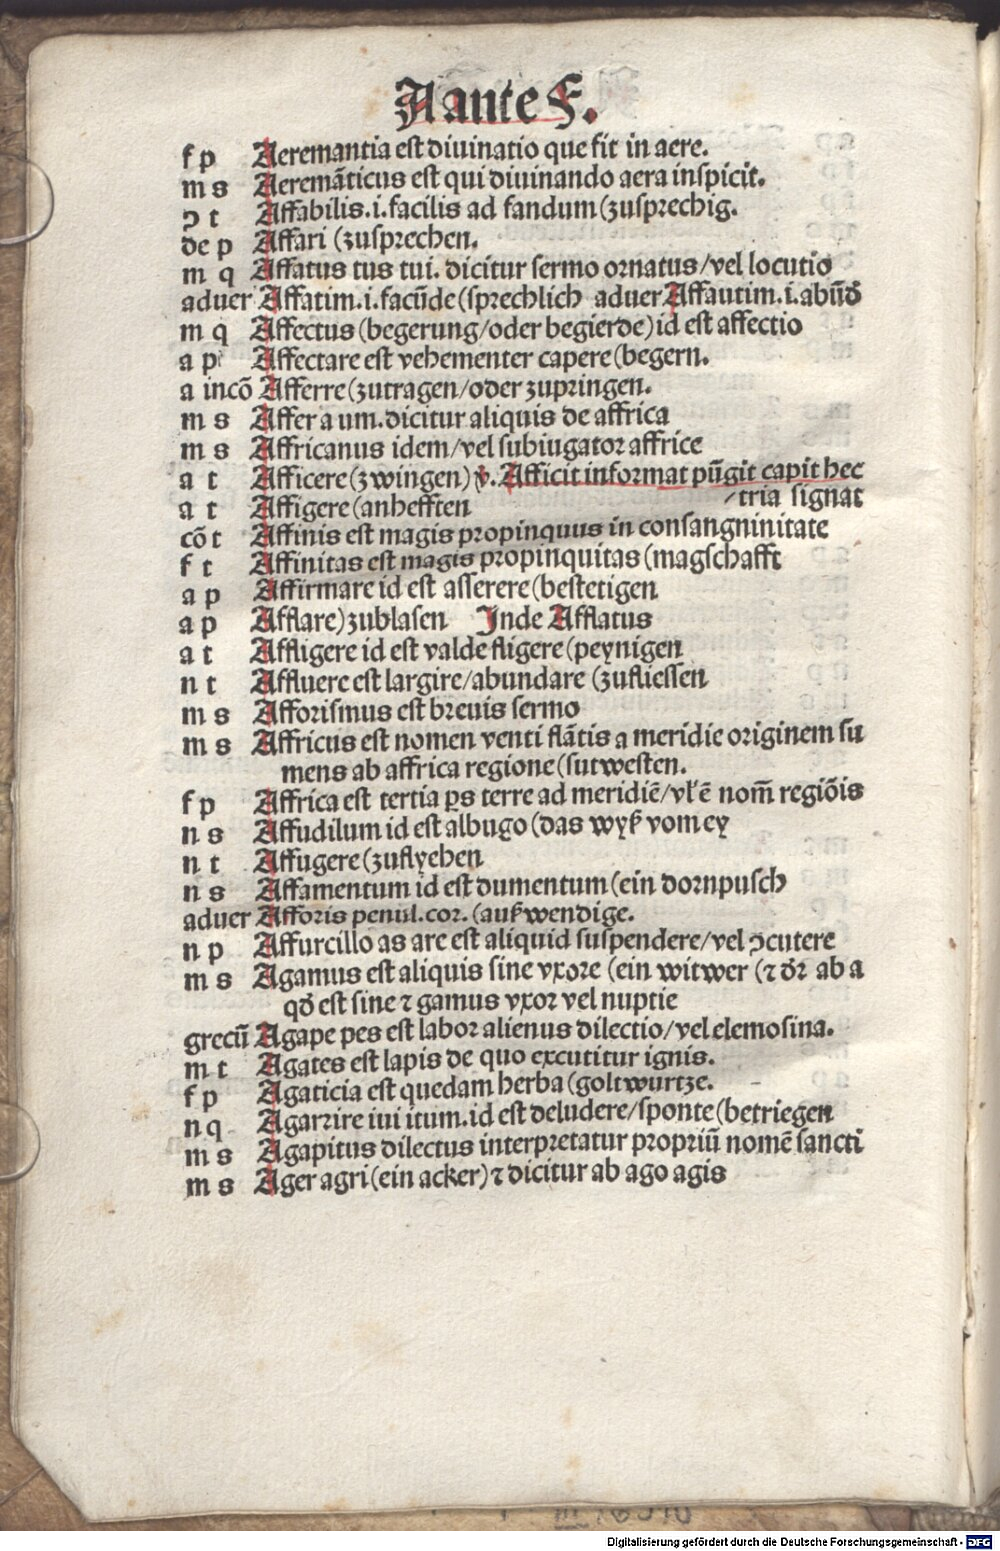 A ante F.
f p Aeremantia est diuinatio que fit in aere.
m s Aeremãticus est qui diuinando aera inspicit.
ɔ t Affabilis.i.facilis ad fandum (zusprechig.
de p Affari (zusprechen.
m q Affatus tus tui. dicitur sermo ornatus/vel locutio
aduer Affatim.i.facũde (sprechlich aduer Affautim.i.abũd̄
m q Affectus (begerung/oder begierde) id est affectio
a p Affectare est vehementer capere (begern.
a incõ Afferre (zutragen/oder zupringen.
m s Affer a um. dicitur aliquis de affrica
m s Affricanus idem/vel subiugator affrice
a t Afficere (zwingen) v̊. Afficit informat pũgit capit hec
a t Affigere (anhefften /tria signat
cõ t Affinis est magis propinquus in consangninitate
f t Affinitas est magis propinquitas (magschafft
a p Affirmare id est asserere (bestetigen
a p Afflare) zublasen Inde Afflatus
a t Affligere id est valde fligere (peynigen
n t Affluere est largire/abundare (zufliessen
m s Afforismus est breuis sermo
m s Affricus est nomen venti flãtis a meridie originem su
mens ab affrica regione (sutwesten.
f p Affrica est tertia ꝑs terre ad meridiẽ/vl' ẽ nom̃ regiõis
n s Affudilum id est albugo (das wyß vom ey
n t Affugere (zuflyehen
n s Affamentum id est dumentum (ein dornpusch
aduer Afforis penul.cor. (außwendige.
n p Affurcillo as are est aliquid suspendere/vel ɔcutere
m s Agamus est aliquis sine vxore (ein witwer (ꝛ dr̄ ab a
qd̄ est sine ꝛ gamus vxor vel nuptie
grecũ Agape pes est labor alienus dilectio/vel elemosina.
m t Agates est lapis de quo excutitur ignis.
f p Agaticia est quedam herba (goltwurtze.
n q Agarrire iui itum.id est deludere/sponte (betriegen
m s Agapitus dilectus interpretatur propriũ nomẽ sancti
m s Ager agri (ein acker) ꝛ dicitur ab ago agis
Digitalisierung gefördert durch die Deutsche Forschungsgemeinschaft - DFG